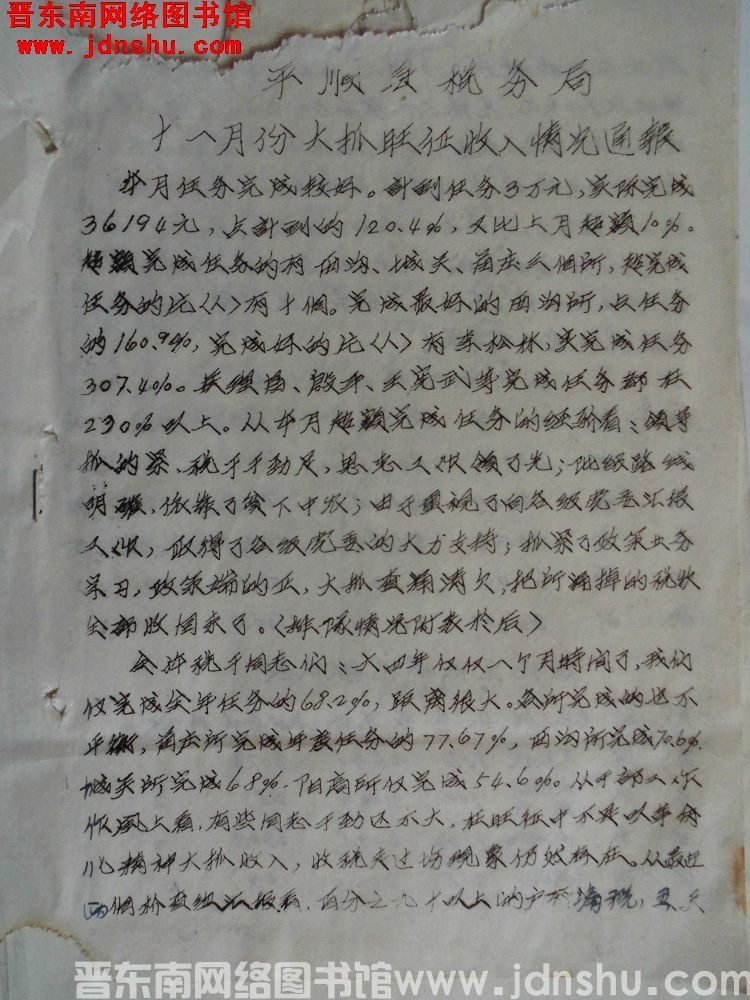 晋东南网络图书馆
www.jdnshu.com
平顺县税务局
十一月份大抓旺征收入情况通报
本月任务完成较好。計划任务3万元,实际完成
36194元,占計划的120.4%,又比上月超额10%。
超额完成任务的有西沟、城关、苗庄三個所,超完成
任务的片〈人〉有十個。完成最好的西沟所,占任务
的160.9%,完成好的片〈人〉有李松林,实完成任务
307.4% 等完成任务都在
230%以上。从本月超额完成任务的经驗看:领导
抓的紧、税干干劲足,思想工作领了先;阶级路线
明確,依靠了贫下中农;由于重视了向各级党委汇报
工作,取得了各级党委的大力支持;抓紧了政策业务
学习,政策端的正,大抓查漏清欠,把所漏掉的税收
全部收回来了。〈排隊情况附表於后〉
全体税干同志们:六四年仅仅一个月時间了,我们
仅完成全年任务的68.2%,距离很大。各所完成的也不
平衡,苗庄所完成年度任务的77.67%,西沟所完成70.6%,
城关所完成68%.阳高所仅完成54.6%。从干部工作
作风上看,有些同志干劲还不大,在旺征中不是以革命
化精神大抓收入,收税走过场现象仍然存在。从最近
四個 查组汇报看,百分之九十以上的户有漏税,
晋东南网络图书馆www.jdnshu.com